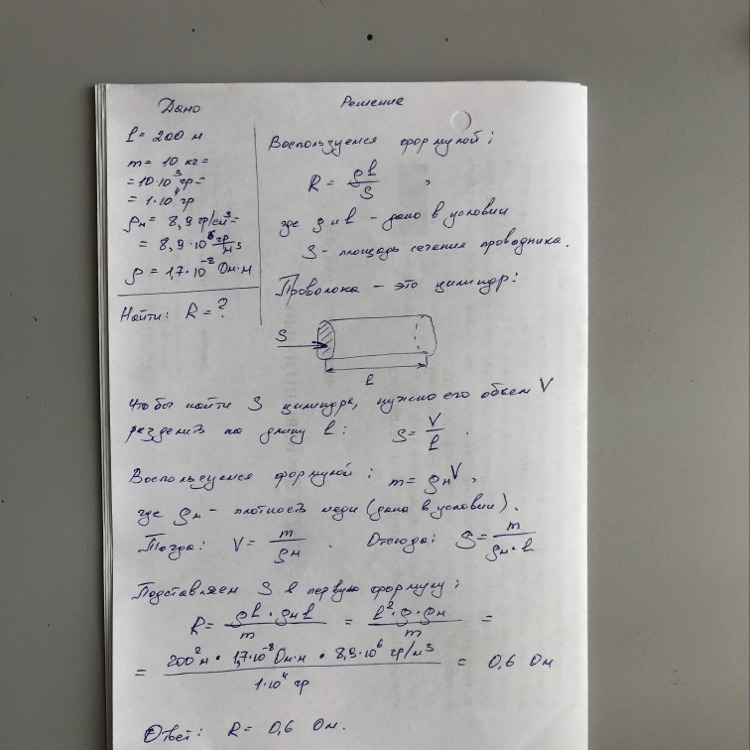 Дано
Решение
l = 200 м
m = 10 кг =
= 10·10³ гр =
= 1·10⁴ гр
ρм = 8,9 гр/см³ =
= 8,9·10⁶ гр/м³
ρ = 1,7·10⁻⁸ Ом·м
Найти: R = ?
Воспользуемся формулой:
R = ρl/S ,
где ρ и l - дано в условии
S - площадь сечения проводника.
Проволока - это цилиндр:
S
l
Чтобы найти S цилиндра, нужно его объем V
разделить на длину l: S = V/l .
Воспользуемся формулой: m = ρмV,
где ρм - плотность меди (дана в условии).
Тогда: V = m/ρм . Отсюда: S = m/ρм·l
Подставляем S в первую формулу:
R = ρl·ρмl/m = l²·ρ·ρм/m =
= 200²м · 1,7·10⁻⁸ Ом·м · 8,9·10⁶ гр/м³ / 1·10⁴ гр = 0,6 Ом
Ответ: R = 0,6 Ом.